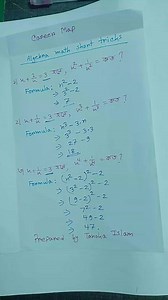 Career Map
Algebra math short tricks
1) x+1/x=3 হলে, x²+1/x² = কত ?
Formula: x²-2
⇒ 3²-2
⇒ 7
2) x+1/x=3 হলে, x³+1/x³ = কত ?
Formula: x³-3.x
⇒ 3³-3.3
⇒ 27-9
⇒ 18
Formula: (x²-2)²-2
⇒ (3²-2)²-2
⇒ (9-2)²-2
⇒ 7²-2
⇒ 49-2
⇒ 47
Prepared by Islam